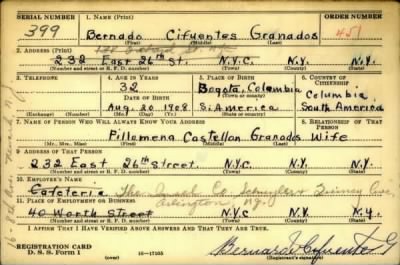 SERIAL NUMBER 1. NAME (Print) ORDER NUMBER
399 Bernado Cifuentes Granados 451
(First) (Middle) (Last)
2. ADDRESS (Print)
232 East 26th St. N.Y.C. N.Y. N.Y.
(Number and street or R. F. D. number) (Town) (County) (State)
3. TELEPHONE 4. AGE IN YEARS 5. PLACE OF BIRTH 6. COUNTRY OF CITIZENSHIP
32 Bogota, Colombia Columbia
DATE OF BIRTH (Town or county)
Aug. 20 1908 S. America South America
(Exchange) (Number) (Mo.) (Day) (Yr.) (State or country)
7. NAME OF PERSON WHO WILL ALWAYS KNOW YOUR ADDRESS 8. RELATIONSHIP OF THAT PERSON
Fillomena Castellon Granados Wife
(Mr., Mrs., Miss) (First) (Middle) (Last)
9. ADDRESS OF THAT PERSON
232 East 26th Street. N.Y.C. N.Y. N.Y.
(Number and street or R. F. D. number) (Town) (County) (State)
10. EMPLOYER'S NAME
Cafeteria
11. PLACE OF EMPLOYMENT OR BUSINESS Arlington, N.J.
40 Worth Street N.Y.C N.Y.C N.Y.
(Number and street or R. F. D. number) (Town) (County) (State)
I AFFIRM THAT I HAVE VERIFIED ABOVE ANSWERS AND THAT THEY ARE TRUE.
REGISTRATION CARD
D. S. S. Form 1 (over) 16—17105 (Registrant's signature)